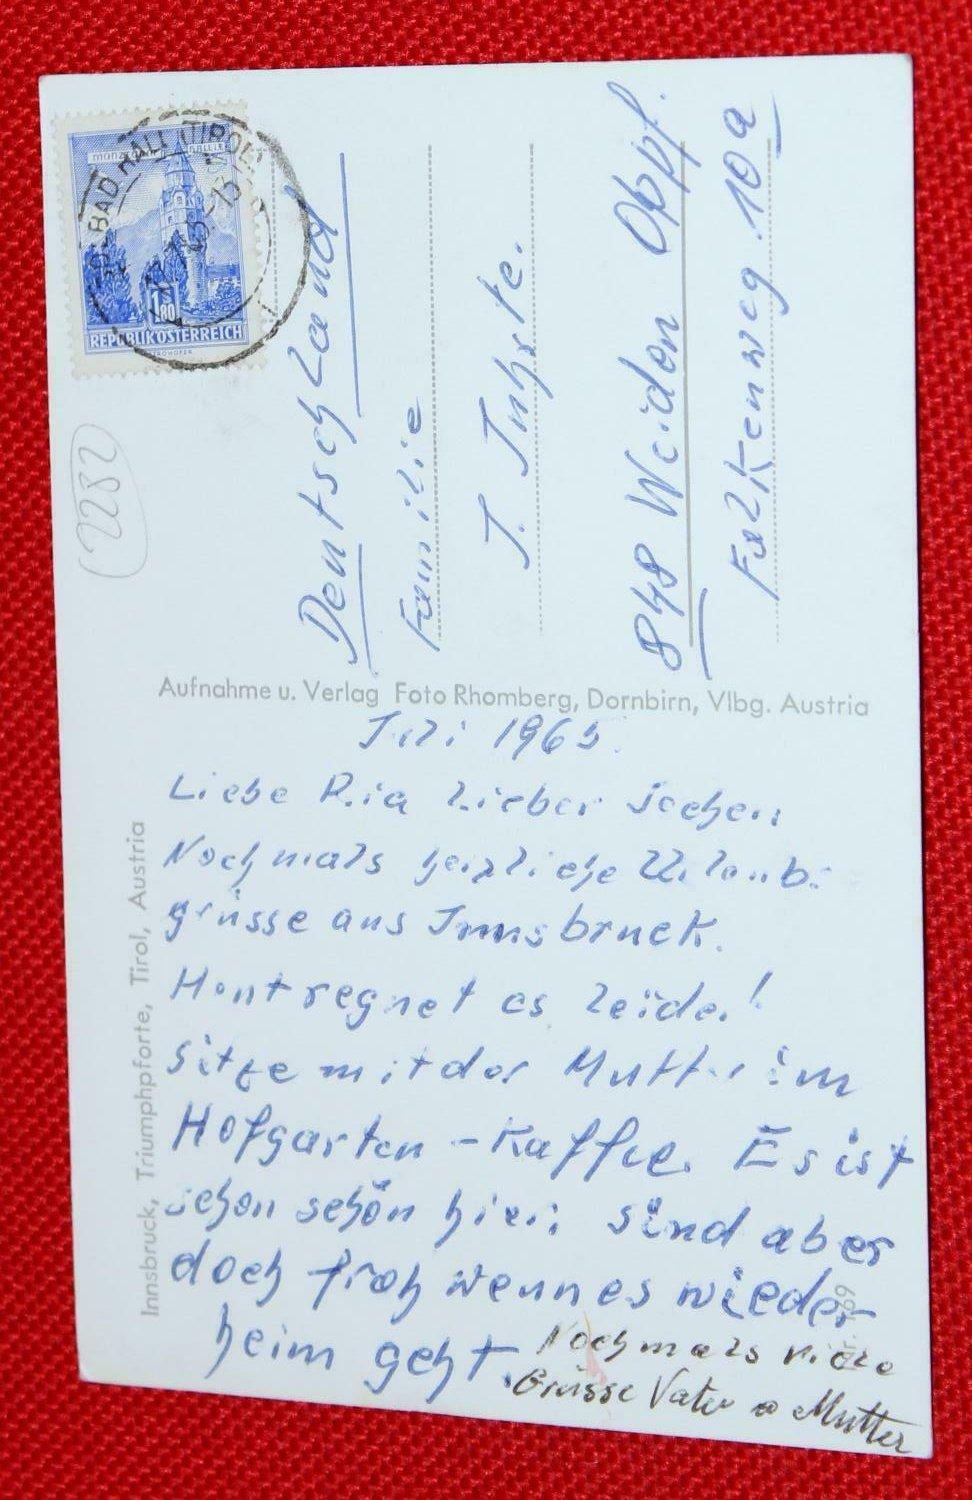 SOLBAD HALL (TIROL)
MÜNZTURM HALL I.T.
1.80
REPUBLIK ÖSTERREICH
2282
Deutschland
Familie
848 Weiden Oppf.
Falkenweg 10a
Aufnahme u. Verlag Foto Rhomberg, Dornbirn, Vlbg. Austria
Innsbruck, Triumphpforte, Tirol, Austria
Juli 1965.
Liebe Ria lieber Jochen
Nochmals herzliche Urlaubs
grüsse aus Innsbruck.
Heut regnet es leider!
Sitze mit der Mutter im
Hofgarten-Kaffee. Es ist
schon schön hier, sind aber
doch froh wenn es wieder
heim geht.
Nochmals viele
Grüsse Vater u Mutter